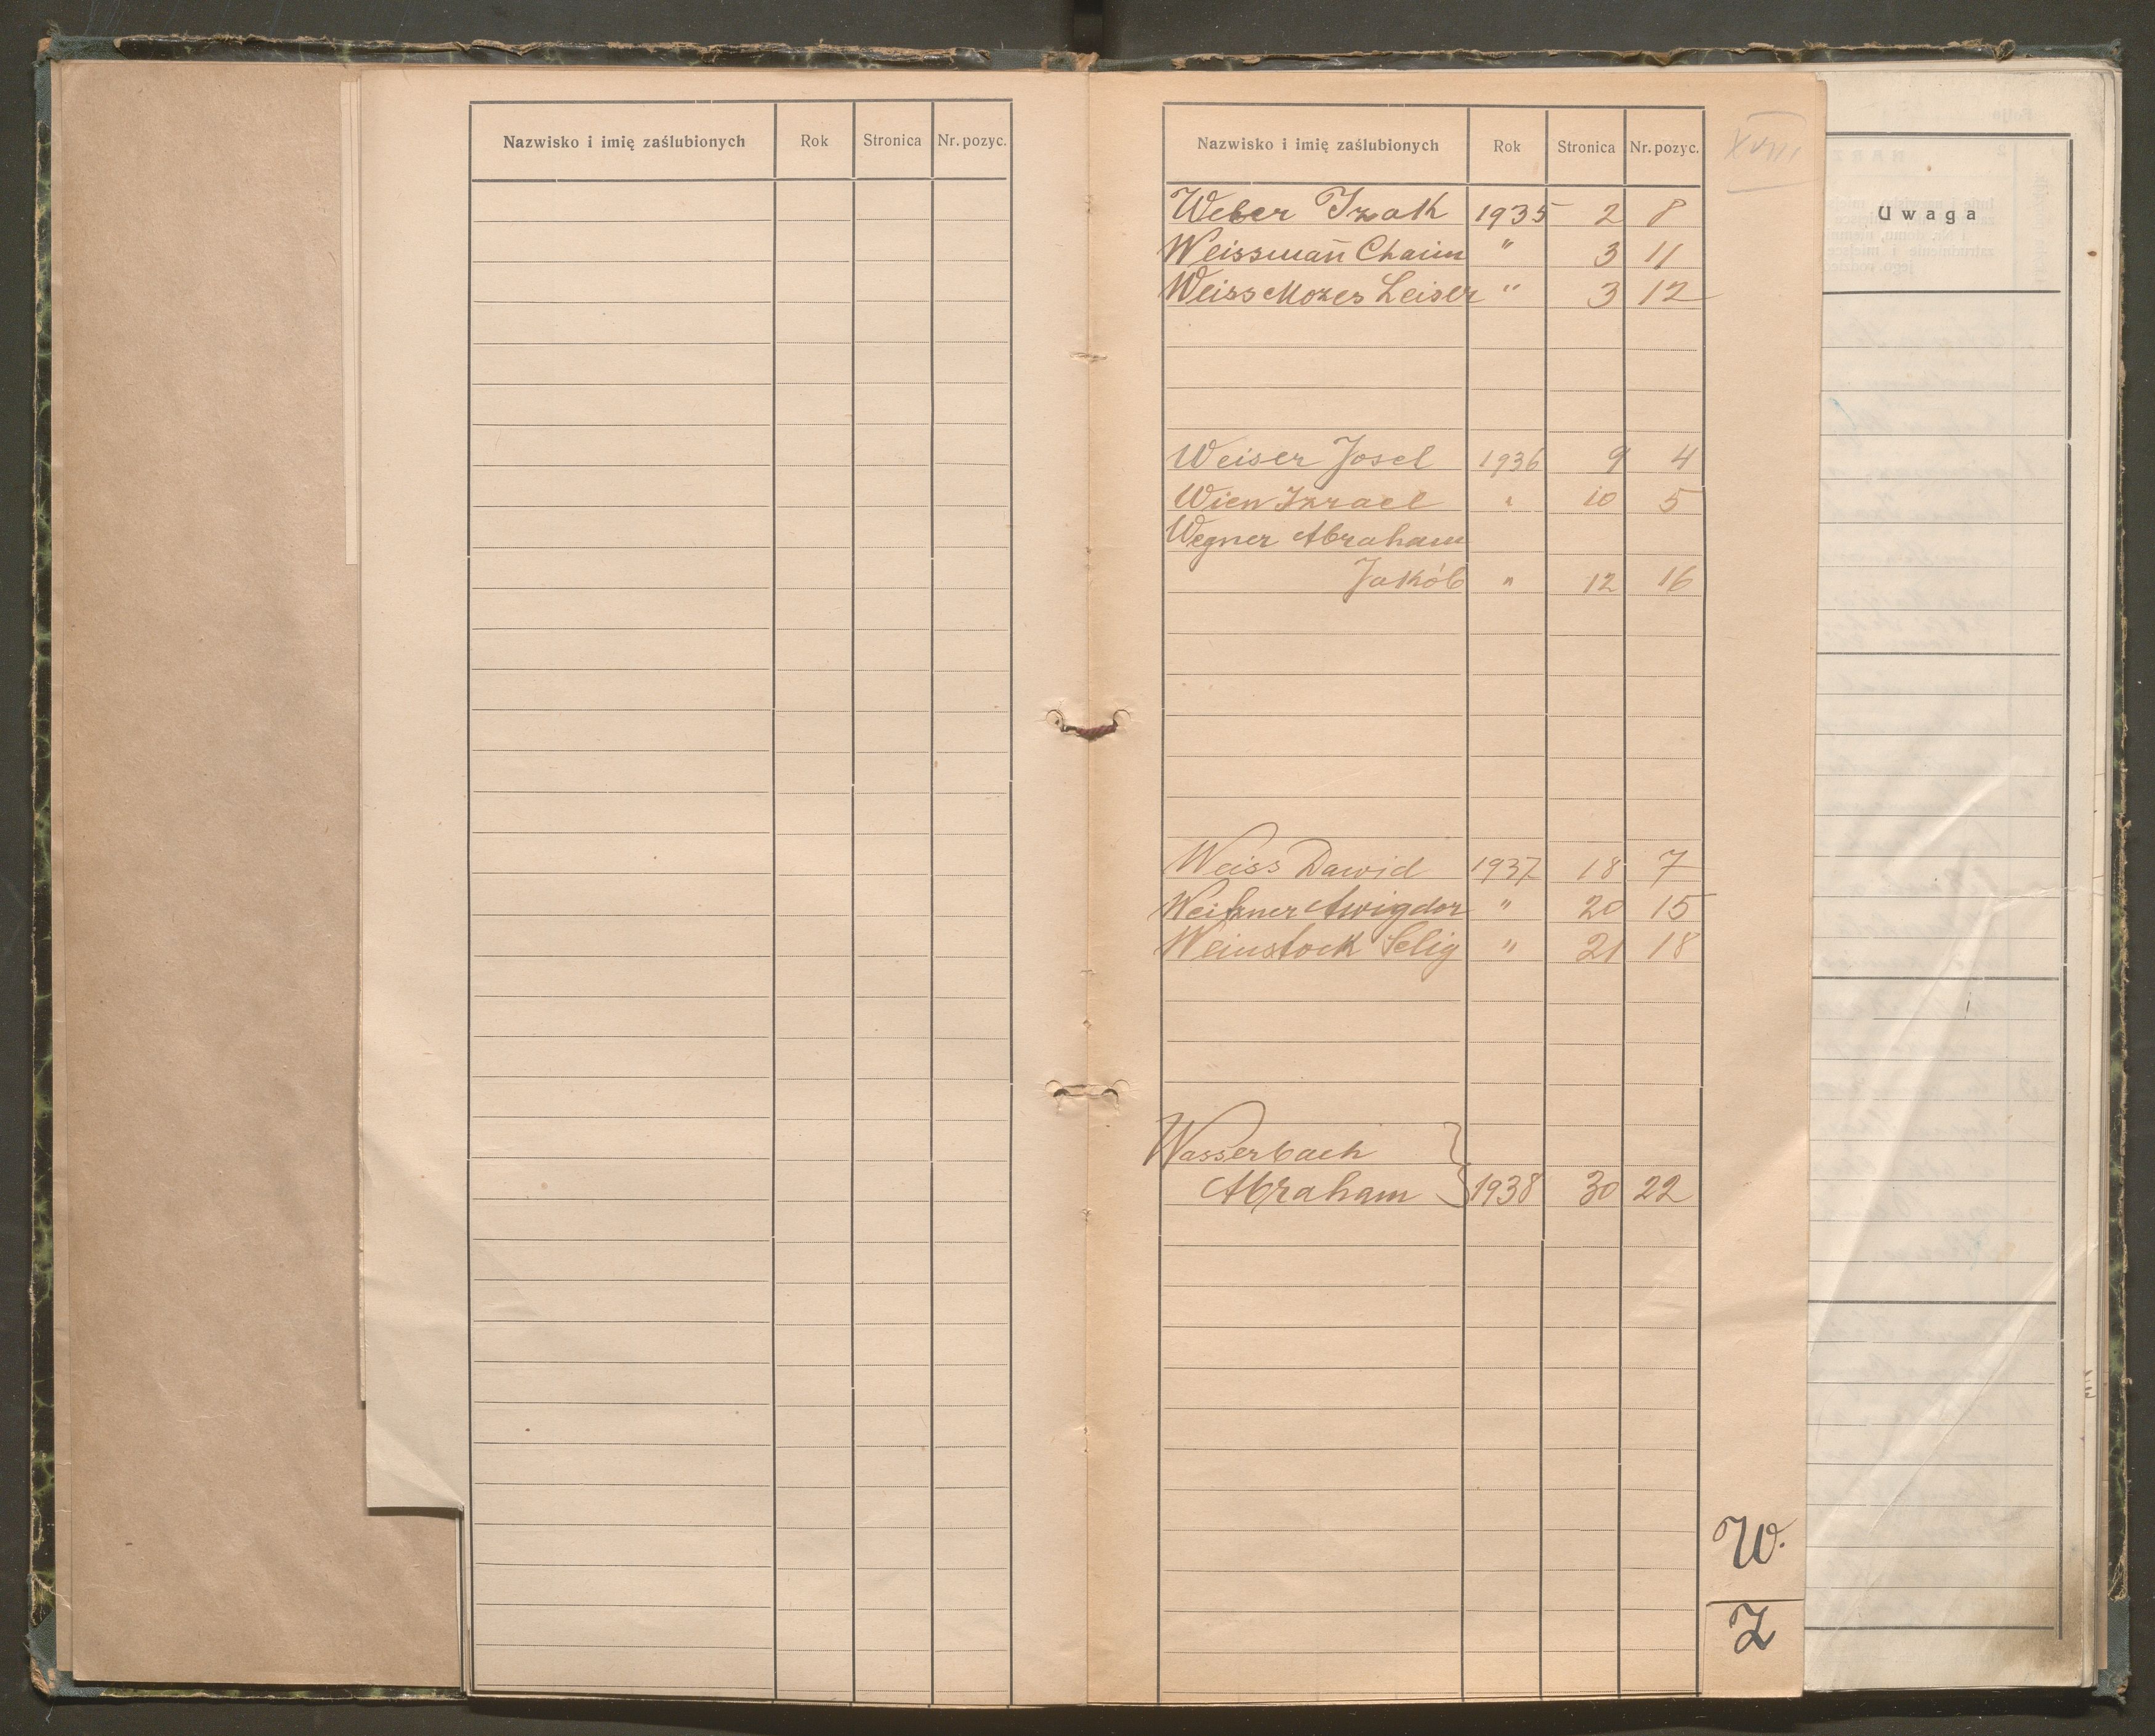 Nazwisko i imię zaślubionych Rok Stronica Nr. pozyc.
Nazwisko i imię zaślubionych Rok Stronica Nr. pozyc.
XVIII
Weber Izak 1935 2 8
Weissmañ Chaim " 3 11
Weiss Mozes Leiser " 3 12
Weiser Josel 1936 9 4
Wien Izrael " 10 5
Wegner Abraham
Jakób " 12 16
Weiss Dawid 1937 18 7
Awigdor " 20 15
Weinstock Selig " 21 18
Wasserbach
Abraham } 1938 30 22
W.
Z
Uwaga